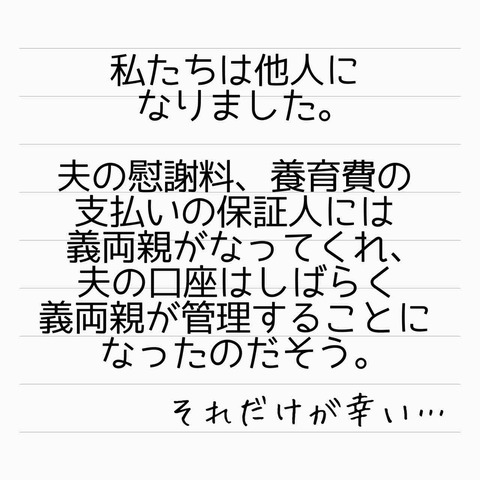 私たちは他人に
なりました。
夫の慰謝料、養育費の
支払いの保証人には
義両親がなってくれ、
夫の口座はしばらく
義両親が管理することに
なったのだそう。
それだけが幸い…